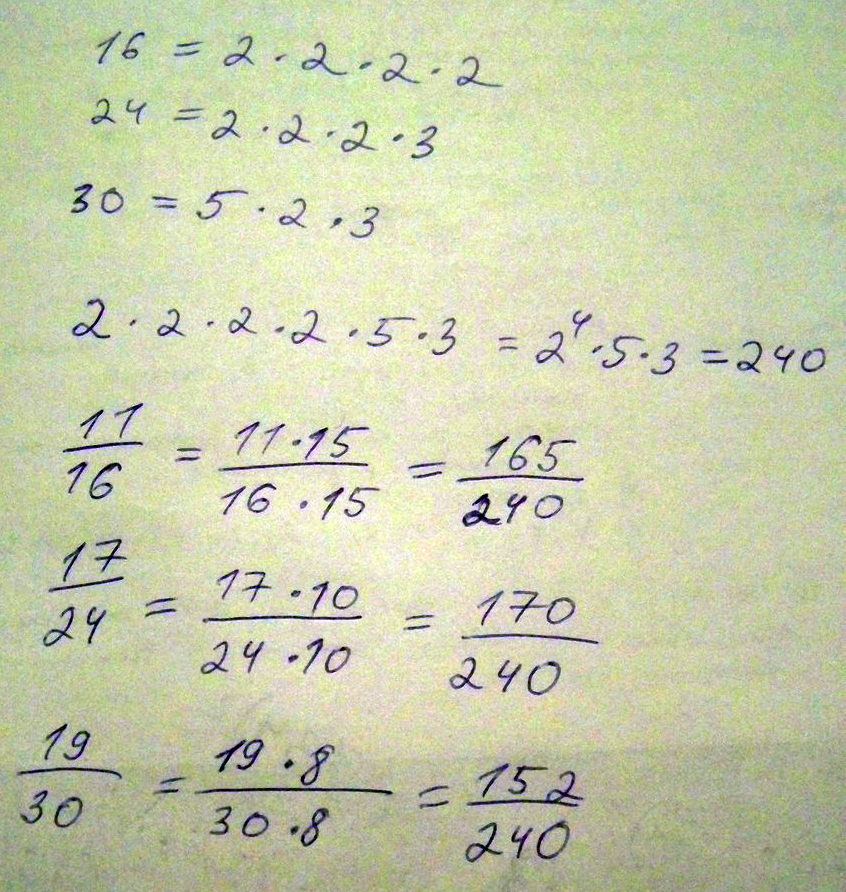 16 = 2 · 2 · 2 · 2
24 = 2 · 2 · 2 · 3
30 = 5 · 2 · 3
2 · 2 · 2 · 2 · 5 · 3 = 2⁴ · 5 · 3 = 240
11/16 = 11·15/16·15 = 165/240
17/24 = 17·10/24·10 = 170/240
19/30 = 19·8/30·8 = 152/240